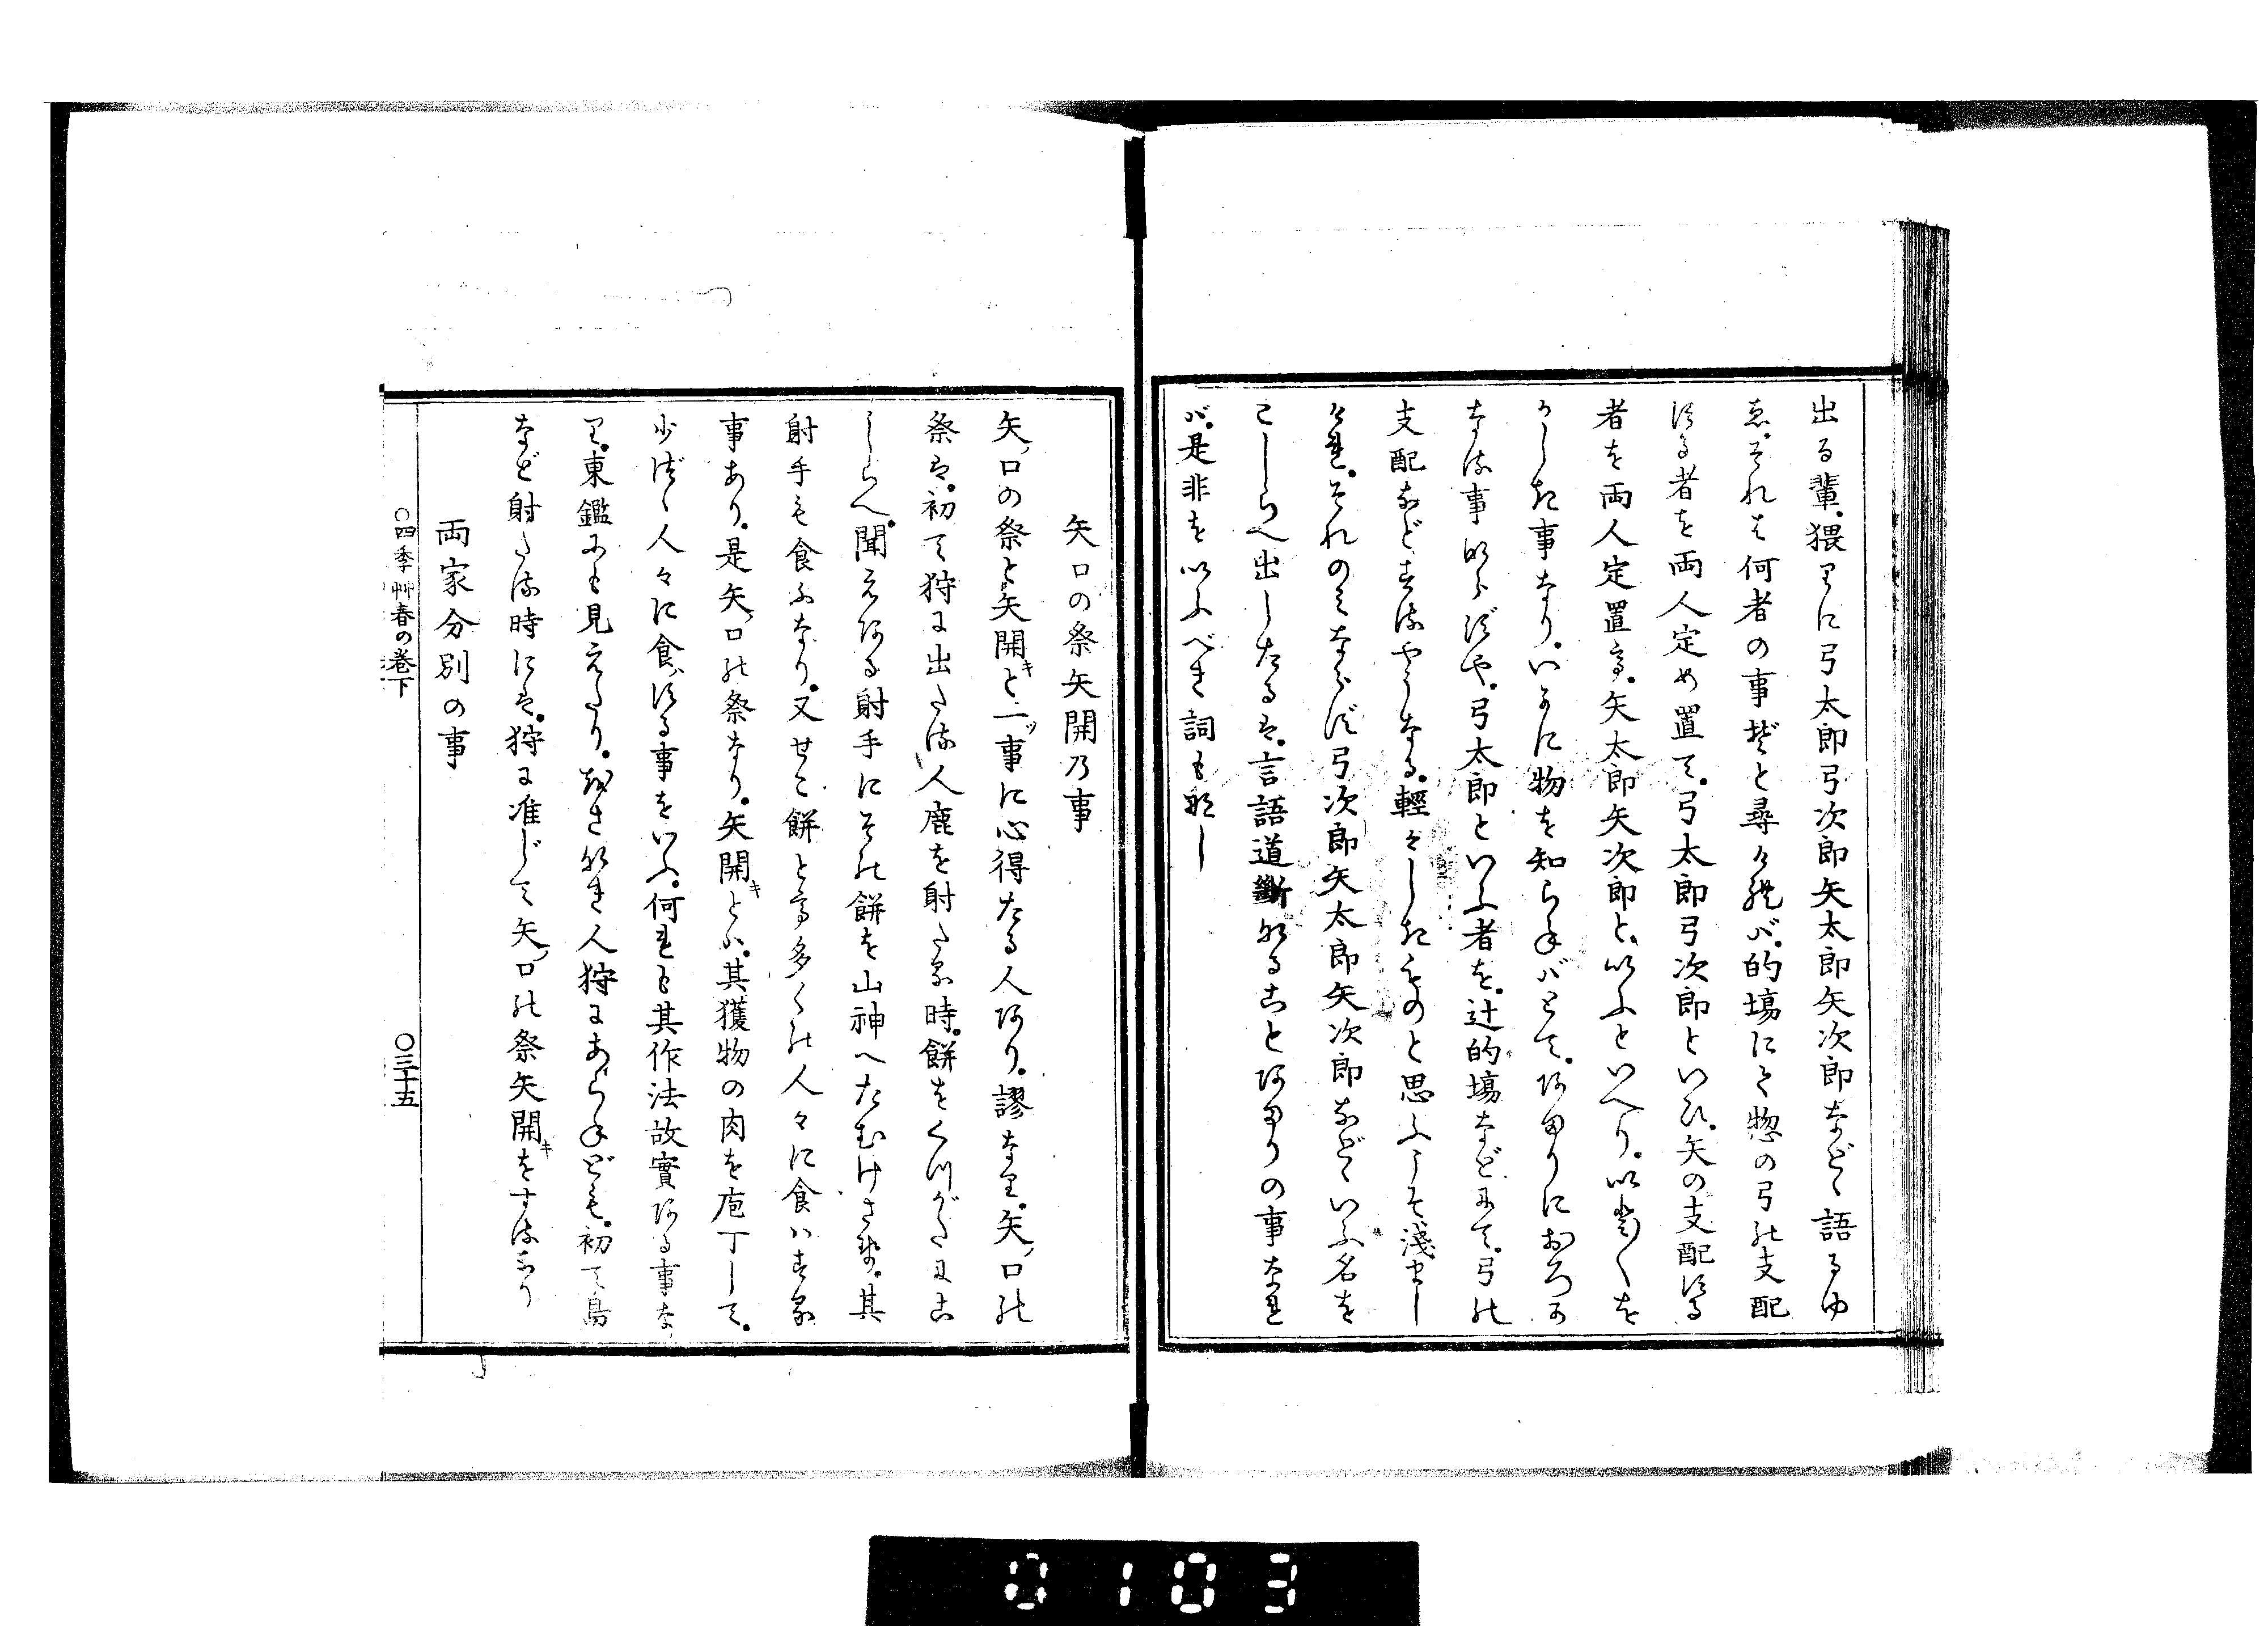 出る輩。猥りに弓太郎弓次郎矢太郎矢次郎など語るゆ
ゑ。それは何者の事ぞと尋ければ。的塲にて惣の弓の支配
する者を両人定め置て。弓太郎弓次郎といひ。矢の支配する
者を両人定置て。矢太郎矢次郎と、いふといへり。
かしき事なり。いかに物を知らねばとて。あまりにおろか
なる事ならずや。弓太郎といふ者を。辻的塲などにて。弓の
支配などするやうなる。輕々しきものと思ふこそ淺まし
けれ。それのみならず弓次郎矢太郎矢次郎などゝいふ名を
こしらへ出したるは。言語道斷なることあまりの事なれ
ば。是非をいふべき詞も無し
矢口の祭矢開乃事
矢ノ口の祭と矢開キと一ツ事に心得たる人あり。謬なり。矢ノ口の
祭は。初て狩に出たる人鹿を射たる時。餅をくつがたにこ
しらへ。聞えある射手にその餅を山神へたむけさせ。其
射手も食ふなり。又せこ餅とて多くの人々に食ハする
事あり。是矢ノ口の祭なり。矢開キとハ。其獲物の肉を庖丁して。
少づゝ人々に食する事をいふ。何れも其作法故實ある事な
り。東鑑にも見えたり。おさなき人狩にあらねども。初て鳥
など射たる時には。狩に准じて矢ノ口の祭矢開キをするなり
両家分別の事
○四季艸春の巻下
○三十五
0103